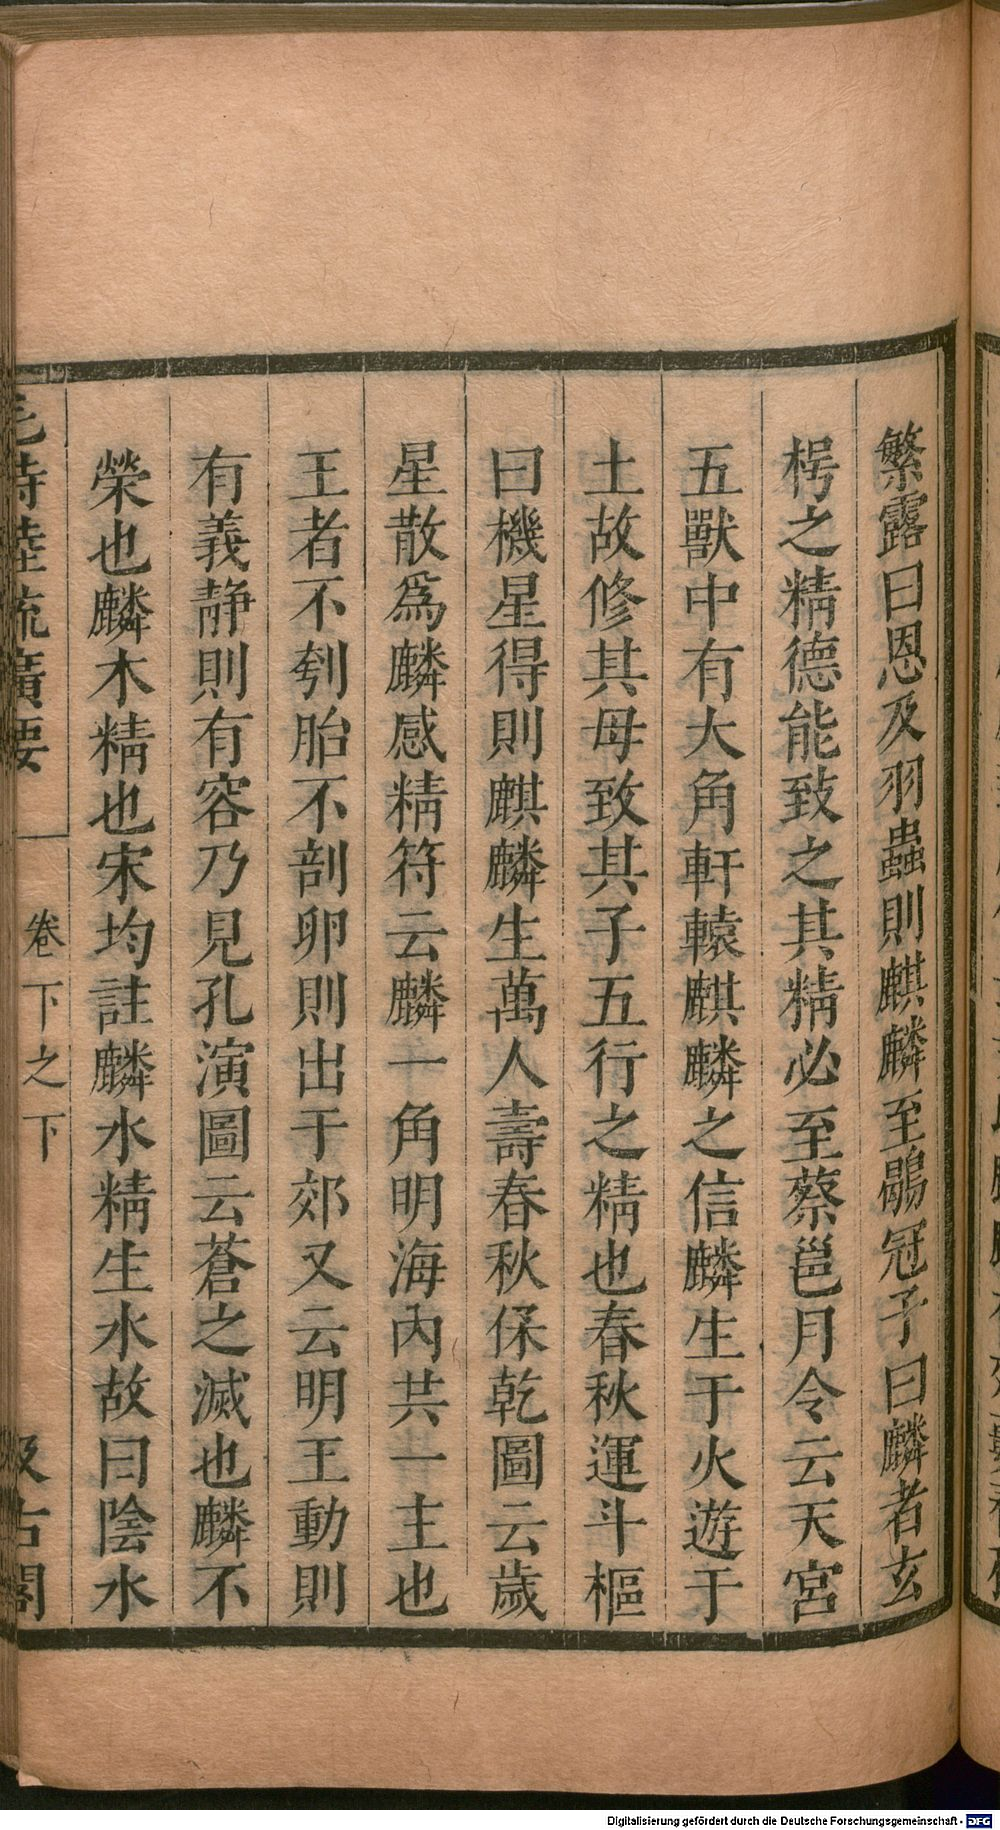 繁露曰恩及羽蟲則麒麟至鶡冠子曰麟者玄
枵之精德能致之其精必至蔡邕月令云天宮
五獸中有大角軒轅麒麟之信麟生于火遊于
土故修其母致其子五行之精也春秋運斗樞
曰機星得則麒麟生萬人壽春秋保乾圖云歲
星散爲麟感精符云麟一角明海內共一主也
王者不刳胎不剖卵則出于郊又云明王動則
有義静則有容乃見孔演圖云蒼之滅也麟不
榮也麟木精也宋均註麟水精生水故曰陰水
毛詩陸疏廣要
卷下之下
汲古閣
Digitalisierung gefördert durch die Deutsche Forschungsgemeinschaft - DFG